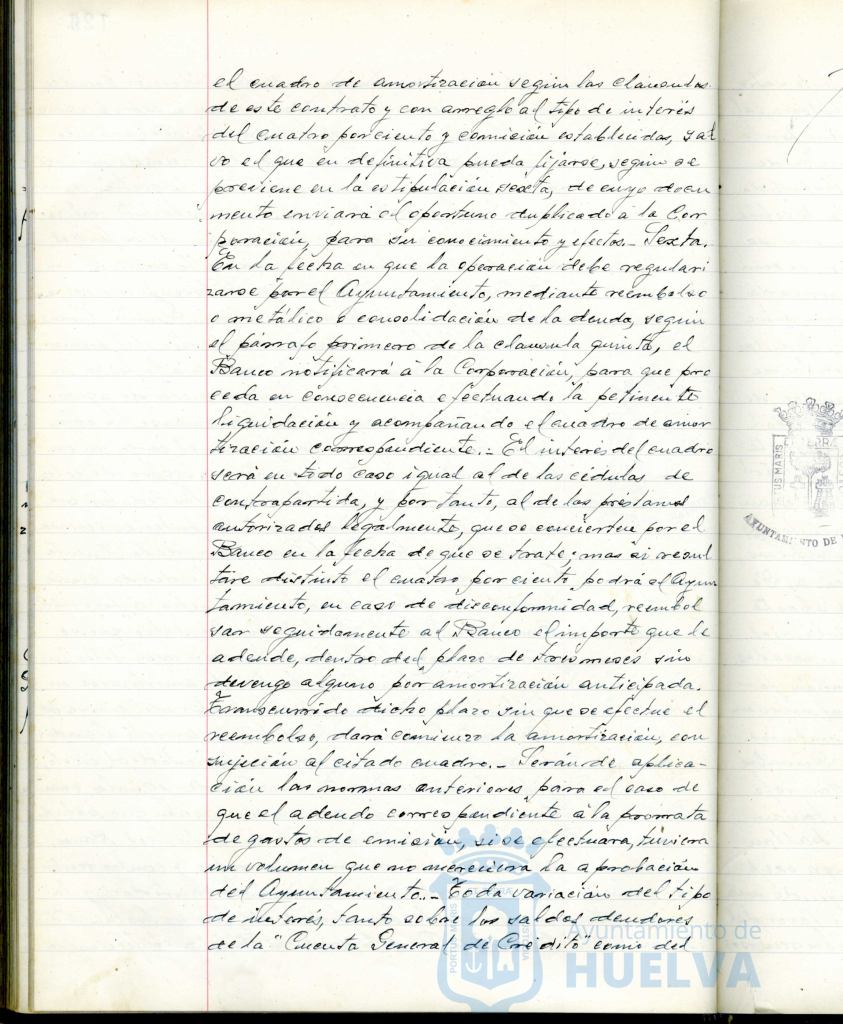 el cuadro de amortización segun las clausulas
de este contrato y con arreglo al tipo de interés
del cuatro por ciento y comisión establecidas, sal
vo el que en definitiva pueda fijarse, segun se
previene en la estipulación sexta, de cuyo docu
mento enviará el oportuno duplicado á la Cor
poración, para su conocimiento y efectos.- Sexta.
En la fecha en que la operación debe regulari
zarse por el Ayuntamiento, mediante reembolso
o metálico o consolidación de la deuda, segun
el párrafo primero de la clausula quinta, el
Banco notificará á la Corporación, para que pro
ceda en consecuencia efectuando la petinente
liquidación y acompañando el cuadro de amor
tización correspondiente.- El interés del cuadro
será en todo caso igual al de las cédulas de
contrapartida, y por tanto, al de los préstamos
autorizados legalmente, que se concierten por el
Banco en la fecha de que se trate; mas si resul
tare distinto el cuatro por ciento podrá el Ayun
tamiento, en caso de disconformidad, reembol
sar seguidamente al Banco el importe que le
adeude, dentro del plazo de tres meses sin
devengo alguno por amortización anticipada.
Transcurrido dicho plazo sin que se efectue el
reembolso, dará comienzo la amortización, con
sujeción al citado cuadro.- Serán de aplica-
ción las normas anteriores para el caso de
que el adeudo correspondiente á la prorrata
de gastos de emisión, si se efectuara, tuviera
un volumen que no mereciera la aprobación
del Ayuntamiento.- Toda variación del tipo
de interés, tanto sobre los saldos deudores
de la "Cuenta General de Crédito" como del
US MARIS
AYUNTAMIENTO DE
Ayuntamiento de
HUELVA
PORTUS MARIS